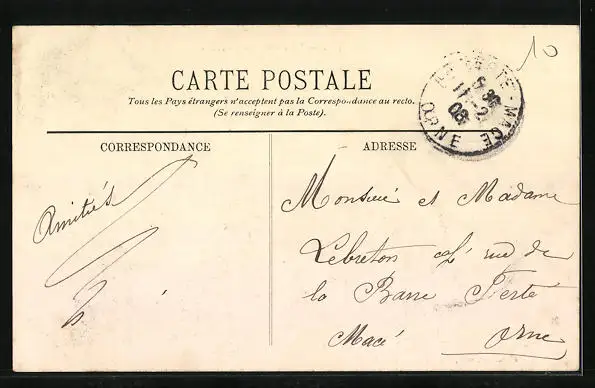 10
CARTE POSTALE
Tous les Pays étrangers n'acceptent pas la Correspondance au recto.
(Se renseigner à la Poste).
LA FERTE-MACE
11-2
08
ORNE
CORRESPONDANCE
ADRESSE
Amitiés
Monsieur et Madame
Lebreton caf rue de
la Barre Ferté
Macé Orne